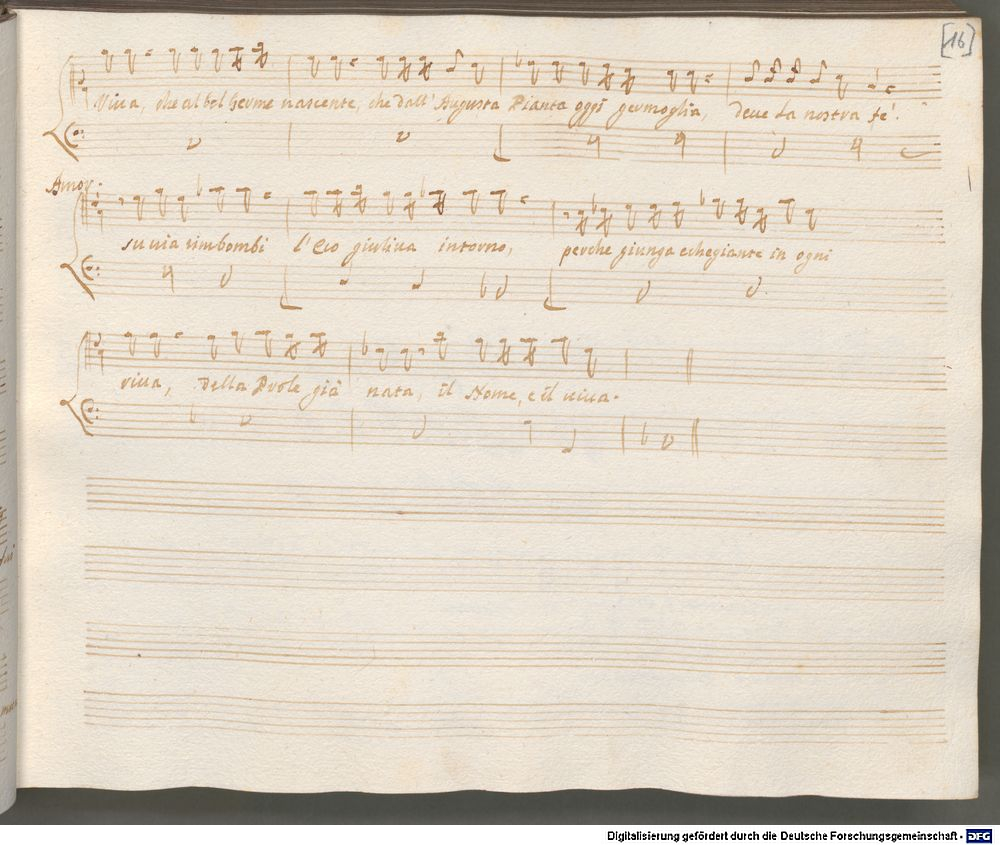 [16]
Viva, che al bel Germe nascente, che dall' Augusta Pianta oggi germoglia, deve la nostra fè.
Amor.
su via rimbombi l'Eco giuliva intorno, perche giunga echegiante in ogni
riva, della Prole già nata, il Nome, e il viva.
Digitalisierung gefördert durch die Deutsche Forschungsgemeinschaft - DFG